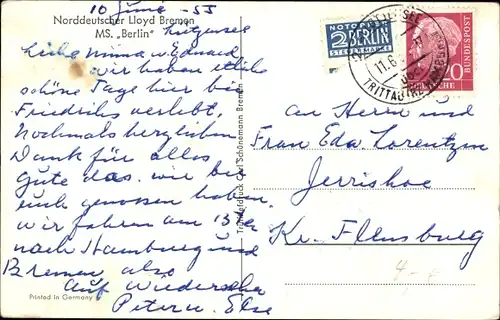 10 Juni - 55
Norddeutscher Lloyd Bremen
MS. „Berlin"
Liebe Minna u Eduard
wir haben etliche
schöne Tage hier bei
Friedrichs verlebt.
Nochmals herzlichen
Dank für alles
gute das wir bei
euch genossen haben.
wir fahren am 13 er
nach Hamburg und
Bremen also
auf wiedersehn
Peter u. Else
Printed in Germany
Schönemann Bremen
NOTOPFER
2 BERLIN
STEUERMARKE
TRITTAU
11.6
20
BUNDESPOST
An Herrn und
Frau Eda Lorentzen
Jerrishoe
Kr. Flensburg